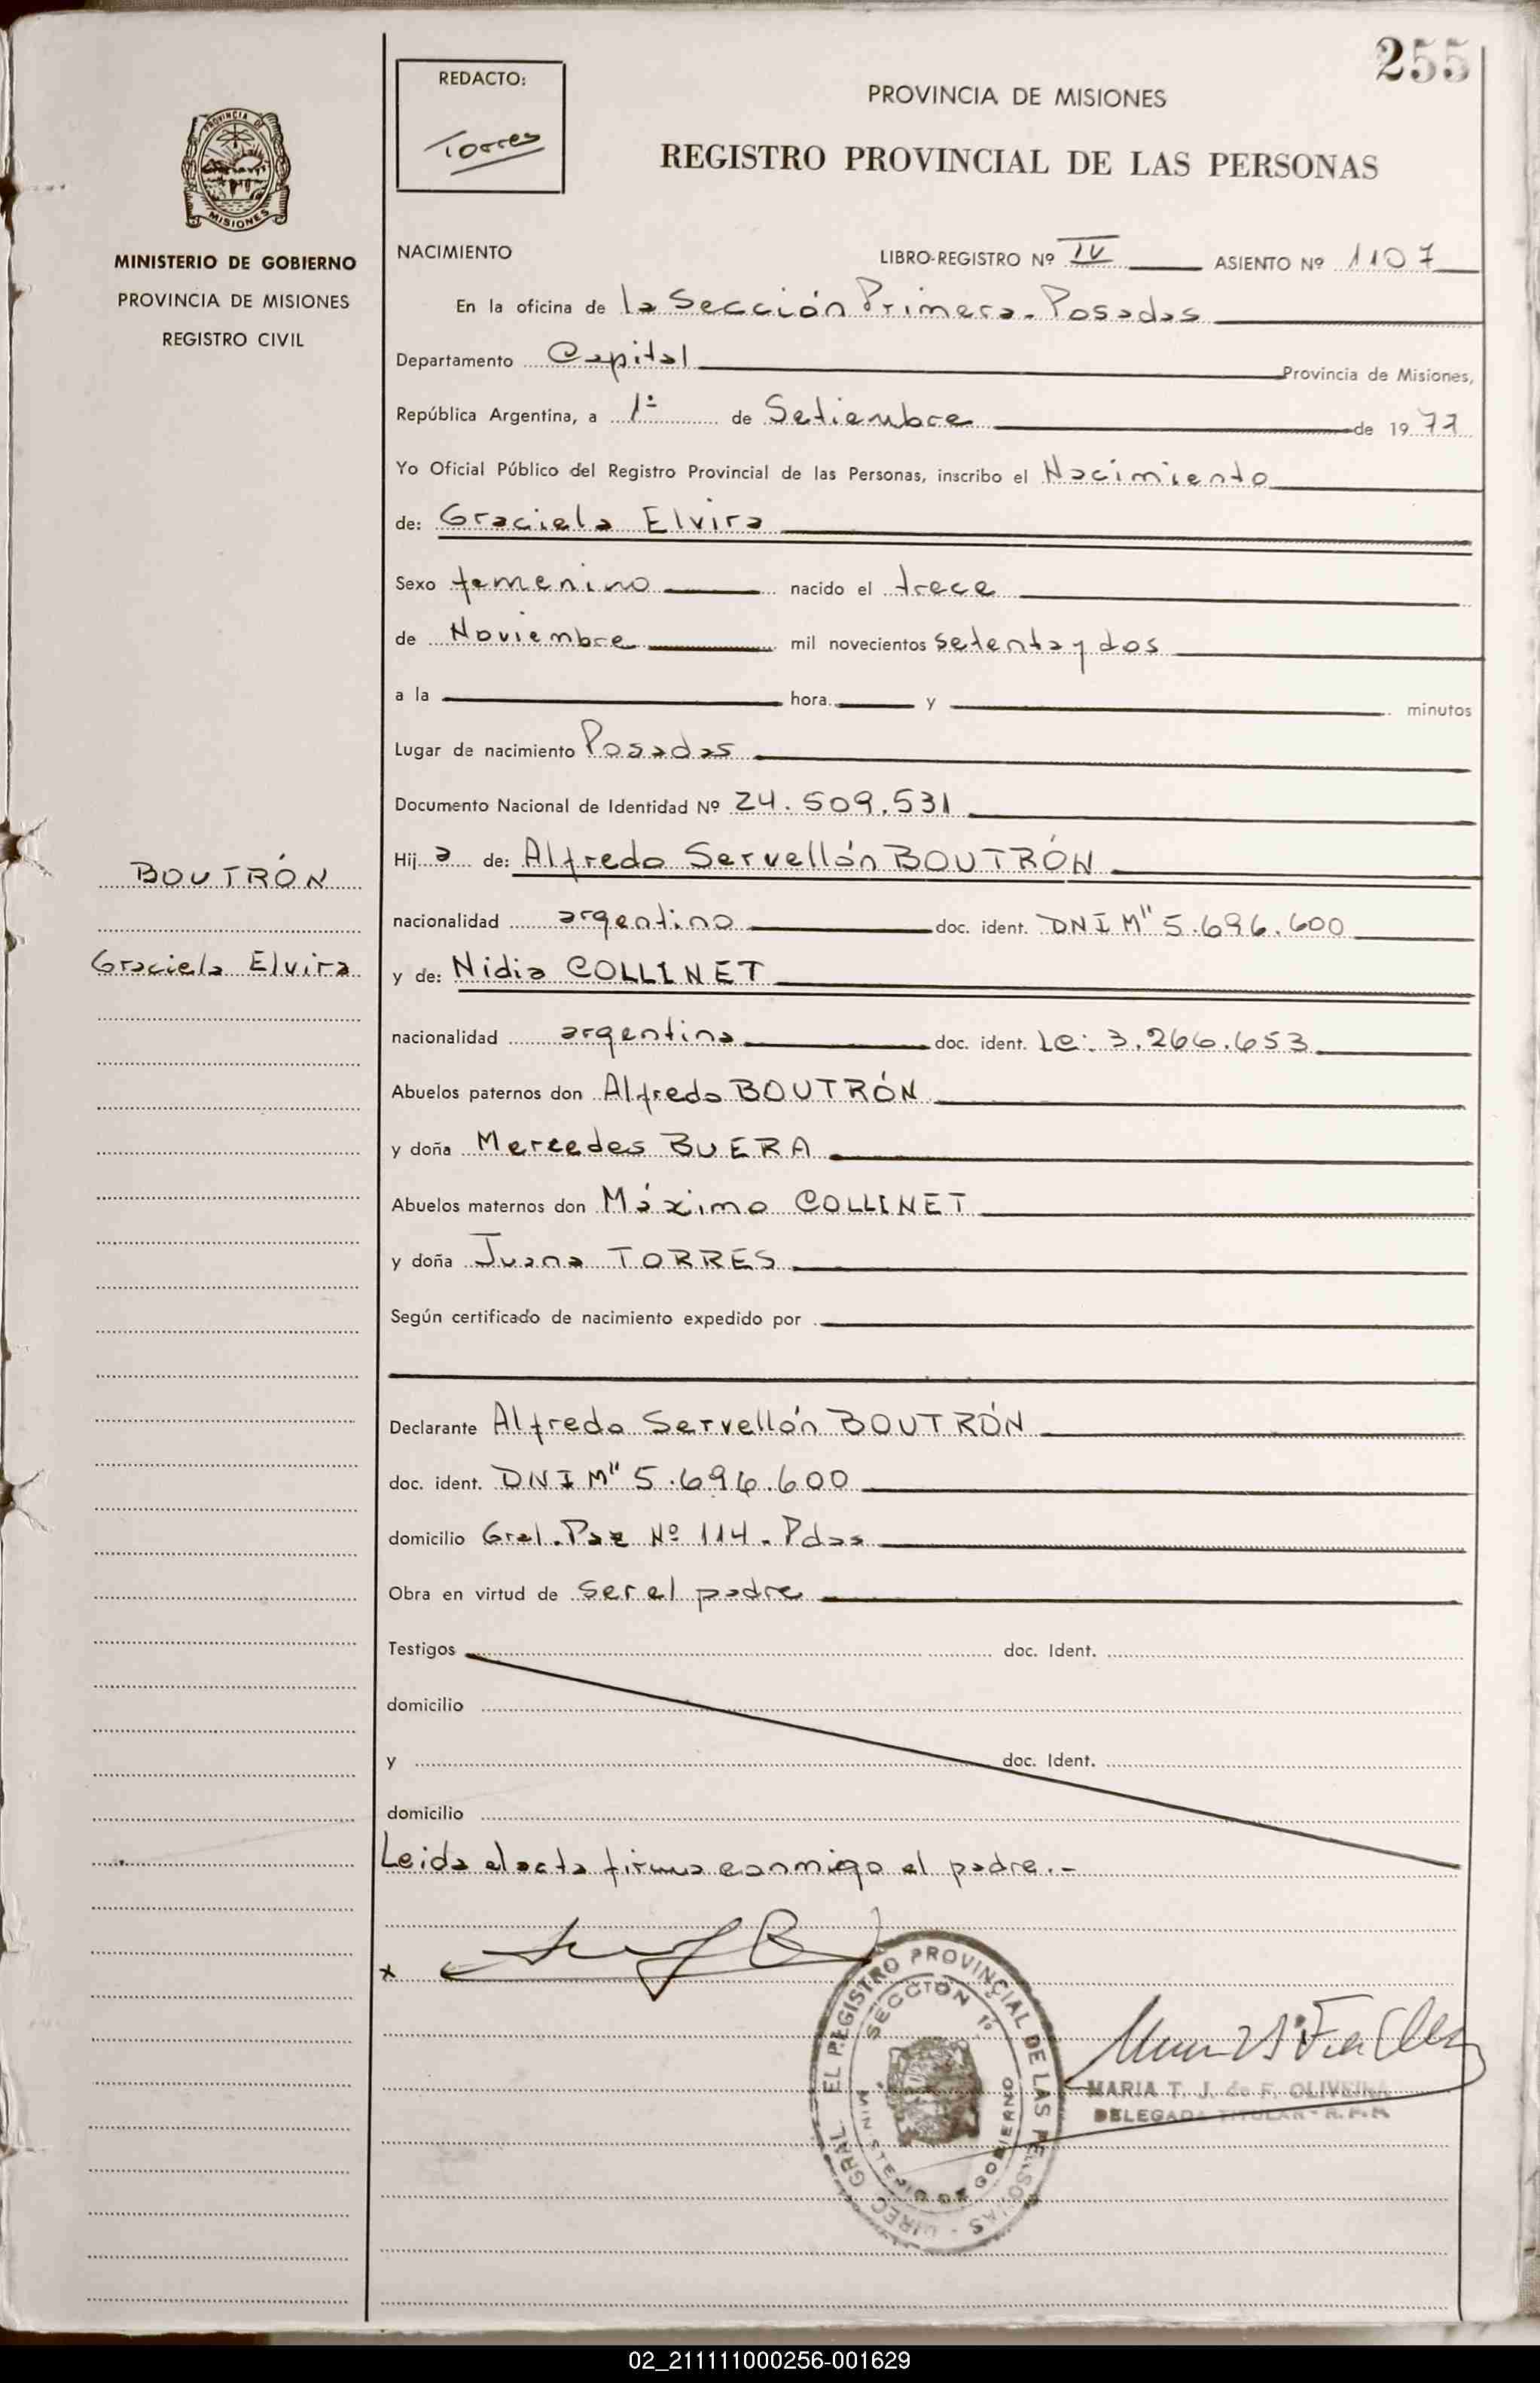 255
REDACTO:
Torres
PROVINCIA DE MISIONES
REGISTRO PROVINCIAL DE LAS PERSONAS
PROVINCIA DE
MISIONES
MINISTERIO DE GOBIERNO
PROVINCIA DE MISIONES
REGISTRO CIVIL
NACIMIENTO LIBRO-REGISTRO Nº IV ASIENTO Nº 1107
En la oficina de la Sección Primera. Posadas
Departamento Capital Provincia de Misiones,
República Argentina, a 1º de Setiembre de 1977
Yo Oficial Público del Registro Provincial de las Personas, inscribo el Nacimiento
de: Graciela Elvira
Sexo femenino nacido el trece
de Noviembre mil novecientos setenta y dos
a la hora y minutos
Lugar de nacimiento Posadas
Documento Nacional de Identidad Nº 24.509.531
Hija de: Alfredo Servellón BOUTRÓN
BOUTRÓN
nacionalidad argentino doc. ident. DNI M" 5.696.600
Graciela Elvira
y de: Nidia COLLINET
nacionalidad argentina doc. ident. LC: 3.266.653
Abuelos paternos don Alfredo BOUTRÓN
y doña Mercedes BUERA
Abuelos maternos don Máximo COLLINET
y doña Juana TORRES
Según certificado de nacimiento expedido por
Declarante Alfredo Servellón BOUTRÓN
doc. ident. DNI M" 5.696.600
domicilio Gral. Paz Nº 114. Pdas
Obra en virtud de ser el padre
Testigos doc. Ident.
domicilio
y doc. Ident.
domicilio
Leida el acta firma conmigo el padre.-
x
DIREC. GRAL. EL REGISTRO PROVINCIAL DE LAS PERSONAS
SECCION 1º
MINISTERIO DE GOBIERNO
MARIA T. J. de F. OLIVEIRA
DELEGADA TITULAR - R.P.P.
02_211111000256-001629